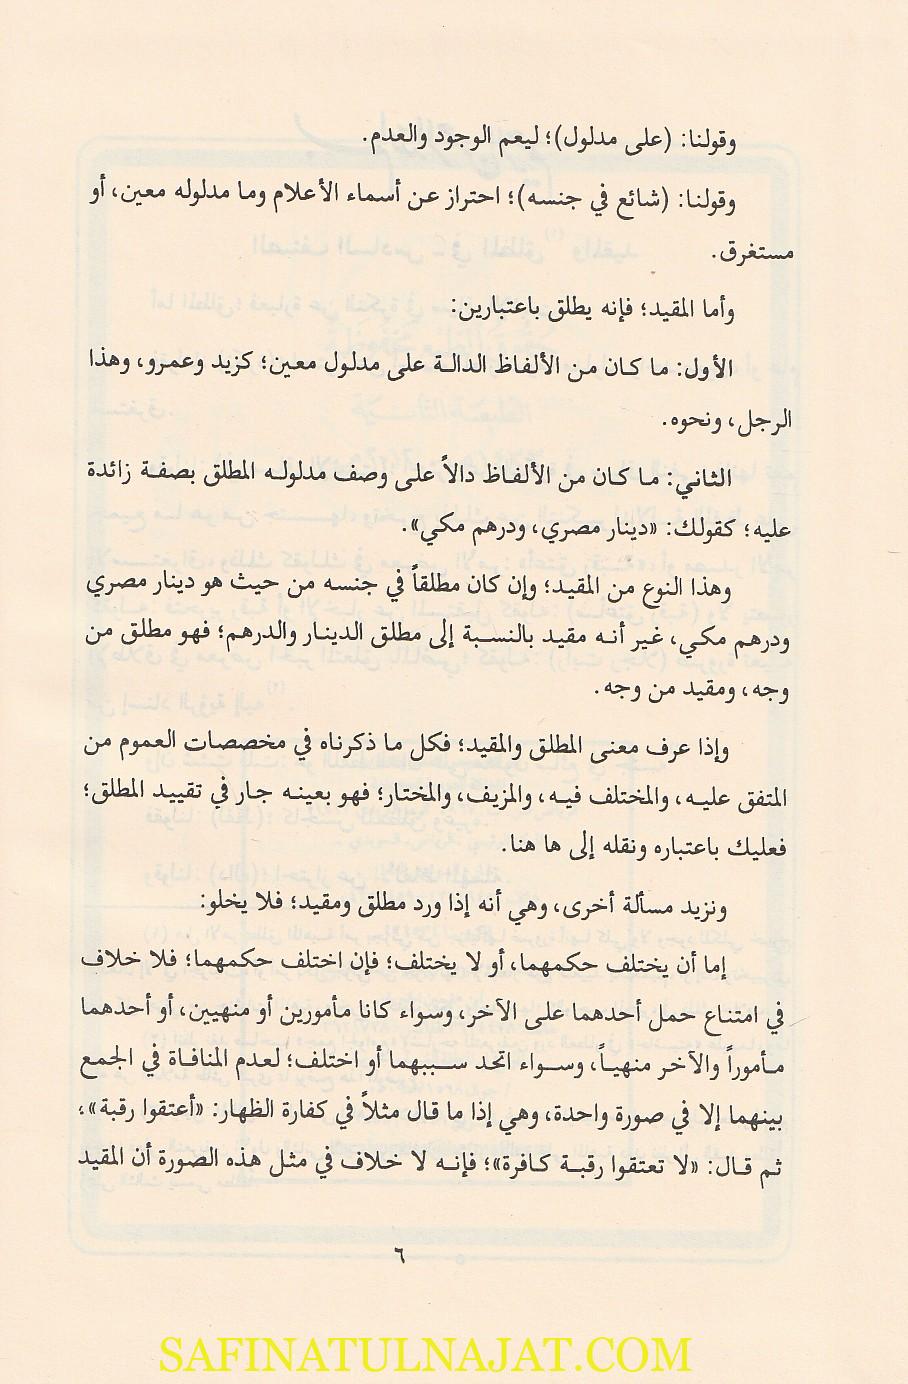 وقولنا: (على مدلول)؛ ليعم الوجود والعدم.
وقولنا: (شائع في جنسه)؛ احتراز عن أسماء الأعلام وما مدلوله معين، أو
مستغرق.
وأما المقيد؛ فإنه يطلق باعتبارين:
الأول: ما كان من الألفاظ الدالة على مدلول معين؛ كزيد وعمرو، وهذا
الرجل، ونحوه.
الثاني: ما كان من الألفاظ دالاً على وصف مدلوله المطلق بصفة زائدة
عليه؛ كقولك: «دينار مصري، ودرهم مكي».
وهذا النوع من المقيد؛ وإن كان مطلقاً في جنسه من حيث هو دينار مصري
ودرهم مكي، غير أنه مقيد بالنسبة إلى مطلق الدينار والدرهم؛ فهو مطلق من
وجه، ومقيد من وجه.
وإذا عرف معنى المطلق والمقيد؛ فكل ما ذكرناه في مخصصات العموم من
المتفق عليه، والمختلف فيه، والمزيف، والمختار؛ فهو بعينه جار في تقييد المطلق؛
فعليك باعتباره ونقله إلى ها هنا.
ونزيد مسألة أخرى، وهي أنه إذا ورد مطلق ومقيد؛ فلا يخلو:
إما أن يختلف حكمهما، أو لا يختلف؛ فإن اختلف حكمهما؛ فلا خلاف
في امتناع حمل أحدهما على الآخر، وسواء كانا مأمورين أو منهيين، أو أحدهما
مأموراً والآخر منهياً، وسواء اتحد سببهما أو اختلف؛ لعدم المنافاة في الجمع
بينهما إلا في صورة واحدة، وهي إذا ما قال مثلاً في كفارة الظهار: «أعتقوا رقبة»،
ثم قال: «لا تعتقوا رقبة كافرة»؛ فإنه لا خلاف في مثل هذه الصورة أن المقيد
٦
SAFINATULNAJAT.COM